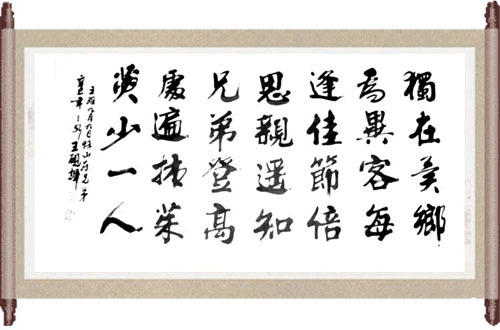 獨在異鄉
為異客每
逢佳節倍
思親遥知
兄弟登高
處遍插茱
萸少一人
王維九月九日憶山东兄弟